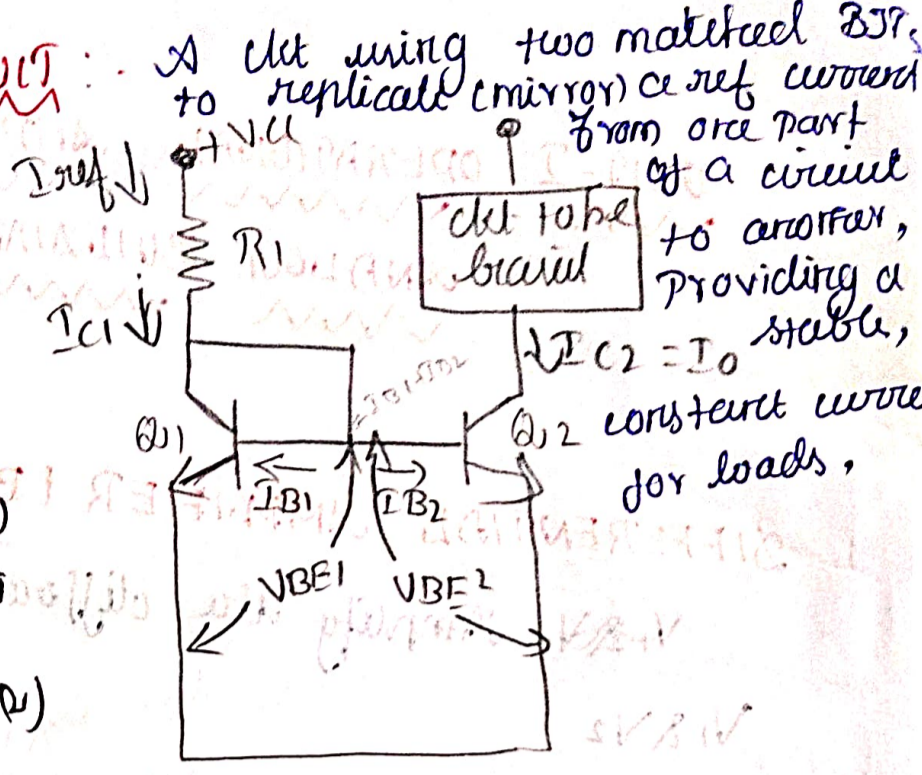 : A ckt using two matched BJTs
to replicate (mirror) a ref current
from one part
of a circuit
to another,
Providing a
stable,
constant curre
for loads,
+VCC
Iref ↓
R1
ckt to be
biasied
IC1 ↓
↓IC2 = IO
Q1
Q2
IB1
IB2
VBE1
VBE2